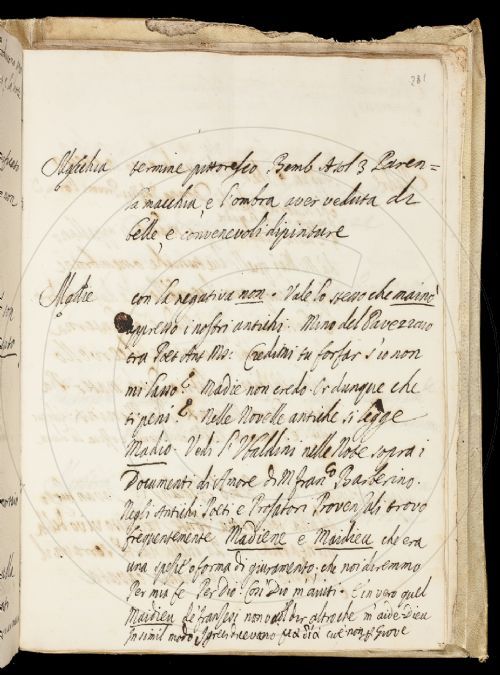 281
Macchia termine pittoresco. Bemb. Asol. 3 Paren=
la macchia, e l'ombra aver veduta di
belle, e convenevoli dipinture
Madie con la negativa non. Vale lo stesso che mainò
appresso i nostri antichi. Mino del Pavezzaio
tra Poet. Ant. Ms: Credimi tu forsar s'io non
mi lasso? Madie non credo. Or dunque che
ti pensi? Nelle Novelle antiche si legge
Madio. Vedi l'Ubaldini nelle Note sopra i
Documenti di Amore di M. Franc. Barberino.
Negli Antichi Poeti e Prosatori Provenzali trovo
frequentemente Madiene e Maidieu che era
una spezie o forma di giuramento. che noi diremmo
Per mia fe Per Dio Così Dio m'aiuti. E in vero quel
Maidieu de' franzesi non vuol dir altro che m'aide Dieu
In simil modo i greci dicevano μα δία cioè non p Giove